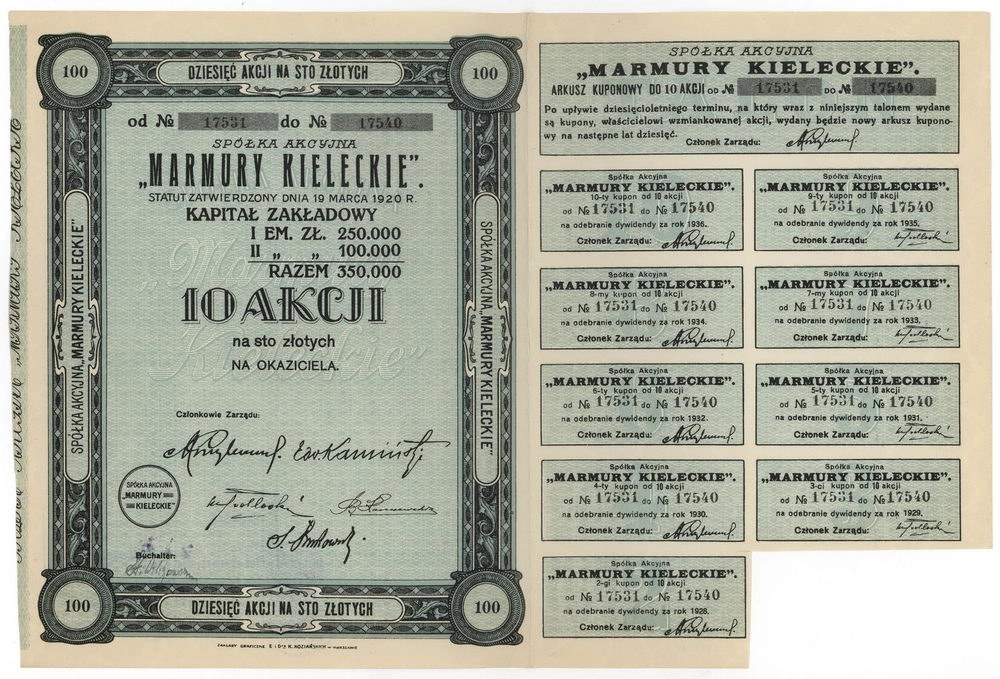 100
DZIESIĘĆ AKCJI NA STO ZŁOTYCH
100
od № 17531 do № 17540
SPÓŁKA AKCYJNA
„MARMURY KIELECKIE”.
STATUT ZATWIERDZONY DNIA 19 MARCA 1920 R.
KAPITAŁ ZAKŁADOWY
I EM. ZŁ. 250.000
II „ „ 100.000
RAZEM 350.000
10 AKCJI
na sto złotych
NA OKAZICIELA.
Członkowie Zarządu:
SPÓŁKA AKCYJNA
„MARMURY
KIELECKIE”
Buchalter:
SPÓŁKA AKCYJNA „MARMURY KIELECKIE”
SPÓŁKA AKCYJNA „MARMURY KIELECKIE”
100
DZIESIĘĆ AKCJI NA STO ZŁOTYCH
100
ZAKŁADY GRAFICZNE E. i D-ra K. KOZIAŃSKICH w WARSZAWIE
SPÓŁKA AKCYJNA
„MARMURY KIELECKIE”.
ARKUSZ KUPONOWY DO 10 AKCJI OD № 17531 DO № 17540
Po upływie dziesięcioletniego terminu, na który wraz z niniejszym talonem wydane
są kupony, właścicielowi wzmiankowanej akcji, wydany będzie nowy arkusz kupono-
wy na następne lat dziesięć.
Członek Zarządu:
Spółka Akcyjna
„MARMURY KIELECKIE”.
10-ty kupon od 10 akcji
od № 17531 do № 17540
na odebranie dywidendy za rok 1936.
Członek Zarządu:
Spółka Akcyjna
„MARMURY KIELECKIE”.
9-ty kupon od 10 akcji
od № 17531 do № 17540
na odebranie dywidendy za rok 1935.
Członek Zarządu:
Spółka Akcyjna
„MARMURY KIELECKIE”.
8-my kupon od 10 akcji
od № 17531 do № 17540
na odebranie dywidendy za rok 1934.
Członek Zarządu:
Spółka Akcyjna
„MARMURY KIELECKIE”.
7-my kupon od 10 akcji
od № 17531 do № 17540
na odebranie dywidendy za rok 1933.
Członek Zarządu:
Spółka Akcyjna
„MARMURY KIELECKIE”.
6-ty kupon od 10 akcji
od № 17531 do № 17540
na odebranie dywidendy za rok 1932.
Członek Zarządu:
Spółka Akcyjna
„MARMURY KIELECKIE”.
5-ty kupon od 10 akcji
od № 17531 do № 17540
na odebranie dywidendy za rok 1931.
Członek Zarządu:
Spółka Akcyjna
„MARMURY KIELECKIE”.
4-ty kupon od 10 akcji
od № 17531 do № 17540
na odebranie dywidendy za rok 1930.
Członek Zarządu:
Spółka Akcyjna
„MARMURY KIELECKIE”.
3-ci kupon od 10 akcji
od № 17531 do № 17540
na odebranie dywidendy za rok 1929.
Członek Zarządu:
Spółka Akcyjna
„MARMURY KIELECKIE”.
2-gi kupon od 10 akcji
od № 17531 do № 17540
na odebranie dywidendy za rok 1928.
Członek Zarządu: